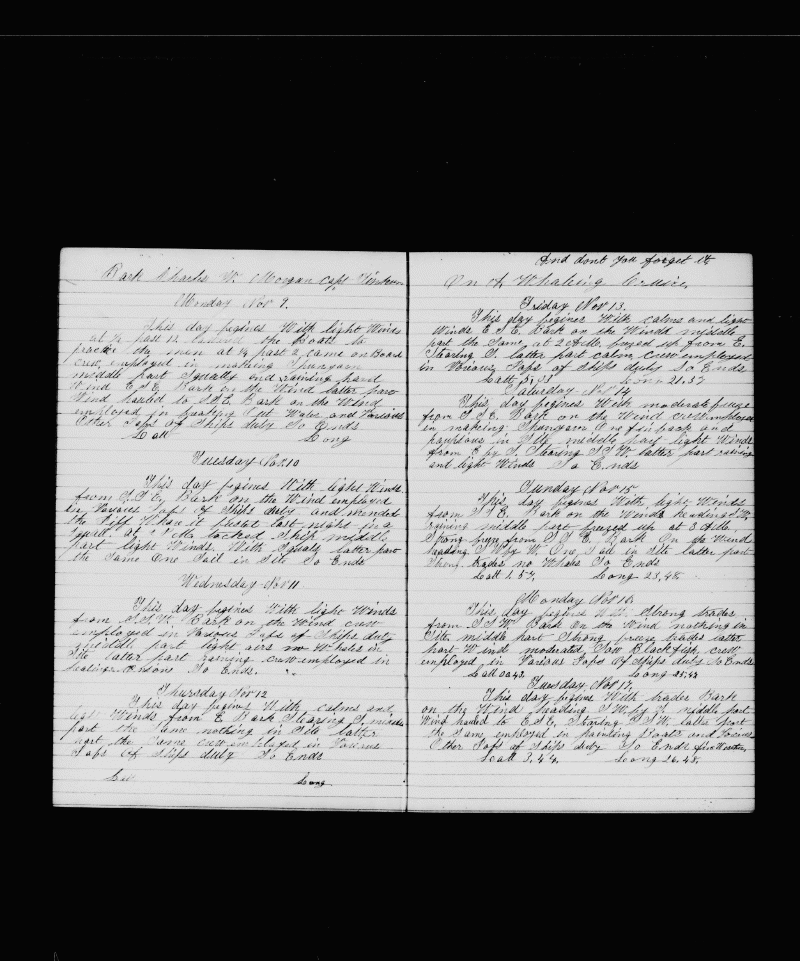 Bark Charles W. Morgan Capt
Monday Nov 9.
This day begines With light Winds
at ½ past 12 lowered the Boatt to
practice the men at ½ past 2 came on Board
crew employed in making Spunyarn
middle part Squally and raining hard
Wind E.S.E. Bark on the Wind latter part
Wind hauled to S.S.E. Bark on the Wind
employed in breaking Out Water and Various
Other Jobs of Ships duty So Ends
Latt Long
Tuesday Nov. 10
This day begines With light Winds
from S.S.E. Bark on the Wind employed
in Various Jobs of Ships duty and mended
the When it last night in a
Squall at tacked Ship middle
part light Winds With Squals latter part
the Same One Sail in Site So Ends
Wednesday Nov 11
This day begines With light Winds
from S.S.W. Bark on the Wind crew
employed in Various Jobs of Ships duty
middle part light airs no Whales in
Site latter part raining crew employed in
So Ends.
Thursday Nov 12
This day begines With calms and
light Winds from E Bark Stearing S. middle
part the Same nothing in Site latter
part the Same crew employed in Various
Jobs of Ships duty So Ends
Long
And dont you forget it
On a Whaleing Cruise
Friday Nov 13.
This day begines With calms and light
Winds E.S.E. Bark on the Wind middle
part the Same, at 2 A.M. breezed up from E.
Stearing S. latter part calm, crew employed
in Various Jobs of Ships duty So Ends
Latt Long 21.57
Saturday Nov 14
This day begines With moderate breeze
from S.S.E. Bark on the Wind crew employed
in making Spunyarn One finback and
in Site, middle part light Winds
from E by S. Stearing S.S.W. latter part raining
and light Winds So Ends
Sunday Nov 15
This day begines With light Winds
from S.S.E. Bark on the Wind heading S.W.
raining middle part breezed up at 3 A.M.
Strong breeze from S.S.E. Bark On the Wind
heading S.W. by W. One Sail in Site latter part
Strong trades no Whales So Ends
Latt 1.57. Long 23.48.
Monday Nov 16
This day begines With Strong trades
from S.S.W. Bark On the Wind nothing in
Site middle part Strong breeze trades latter
part Wind moderated Saw Blackfish, crew
employed in Various Jobs of Ships duty So Ends
Latt 00.43. Long 25.43
Tuesday Nov 17.
This day begins With trades Bark
on the Wind heading S.W. by W. middle part
Wind hauled to E.S.E. Stearing S.S.W. latter part
the Same employed in painting Boats and Various
Other Jobs of Ships duty So Ends fine Weather,
Latt Long 26.48.